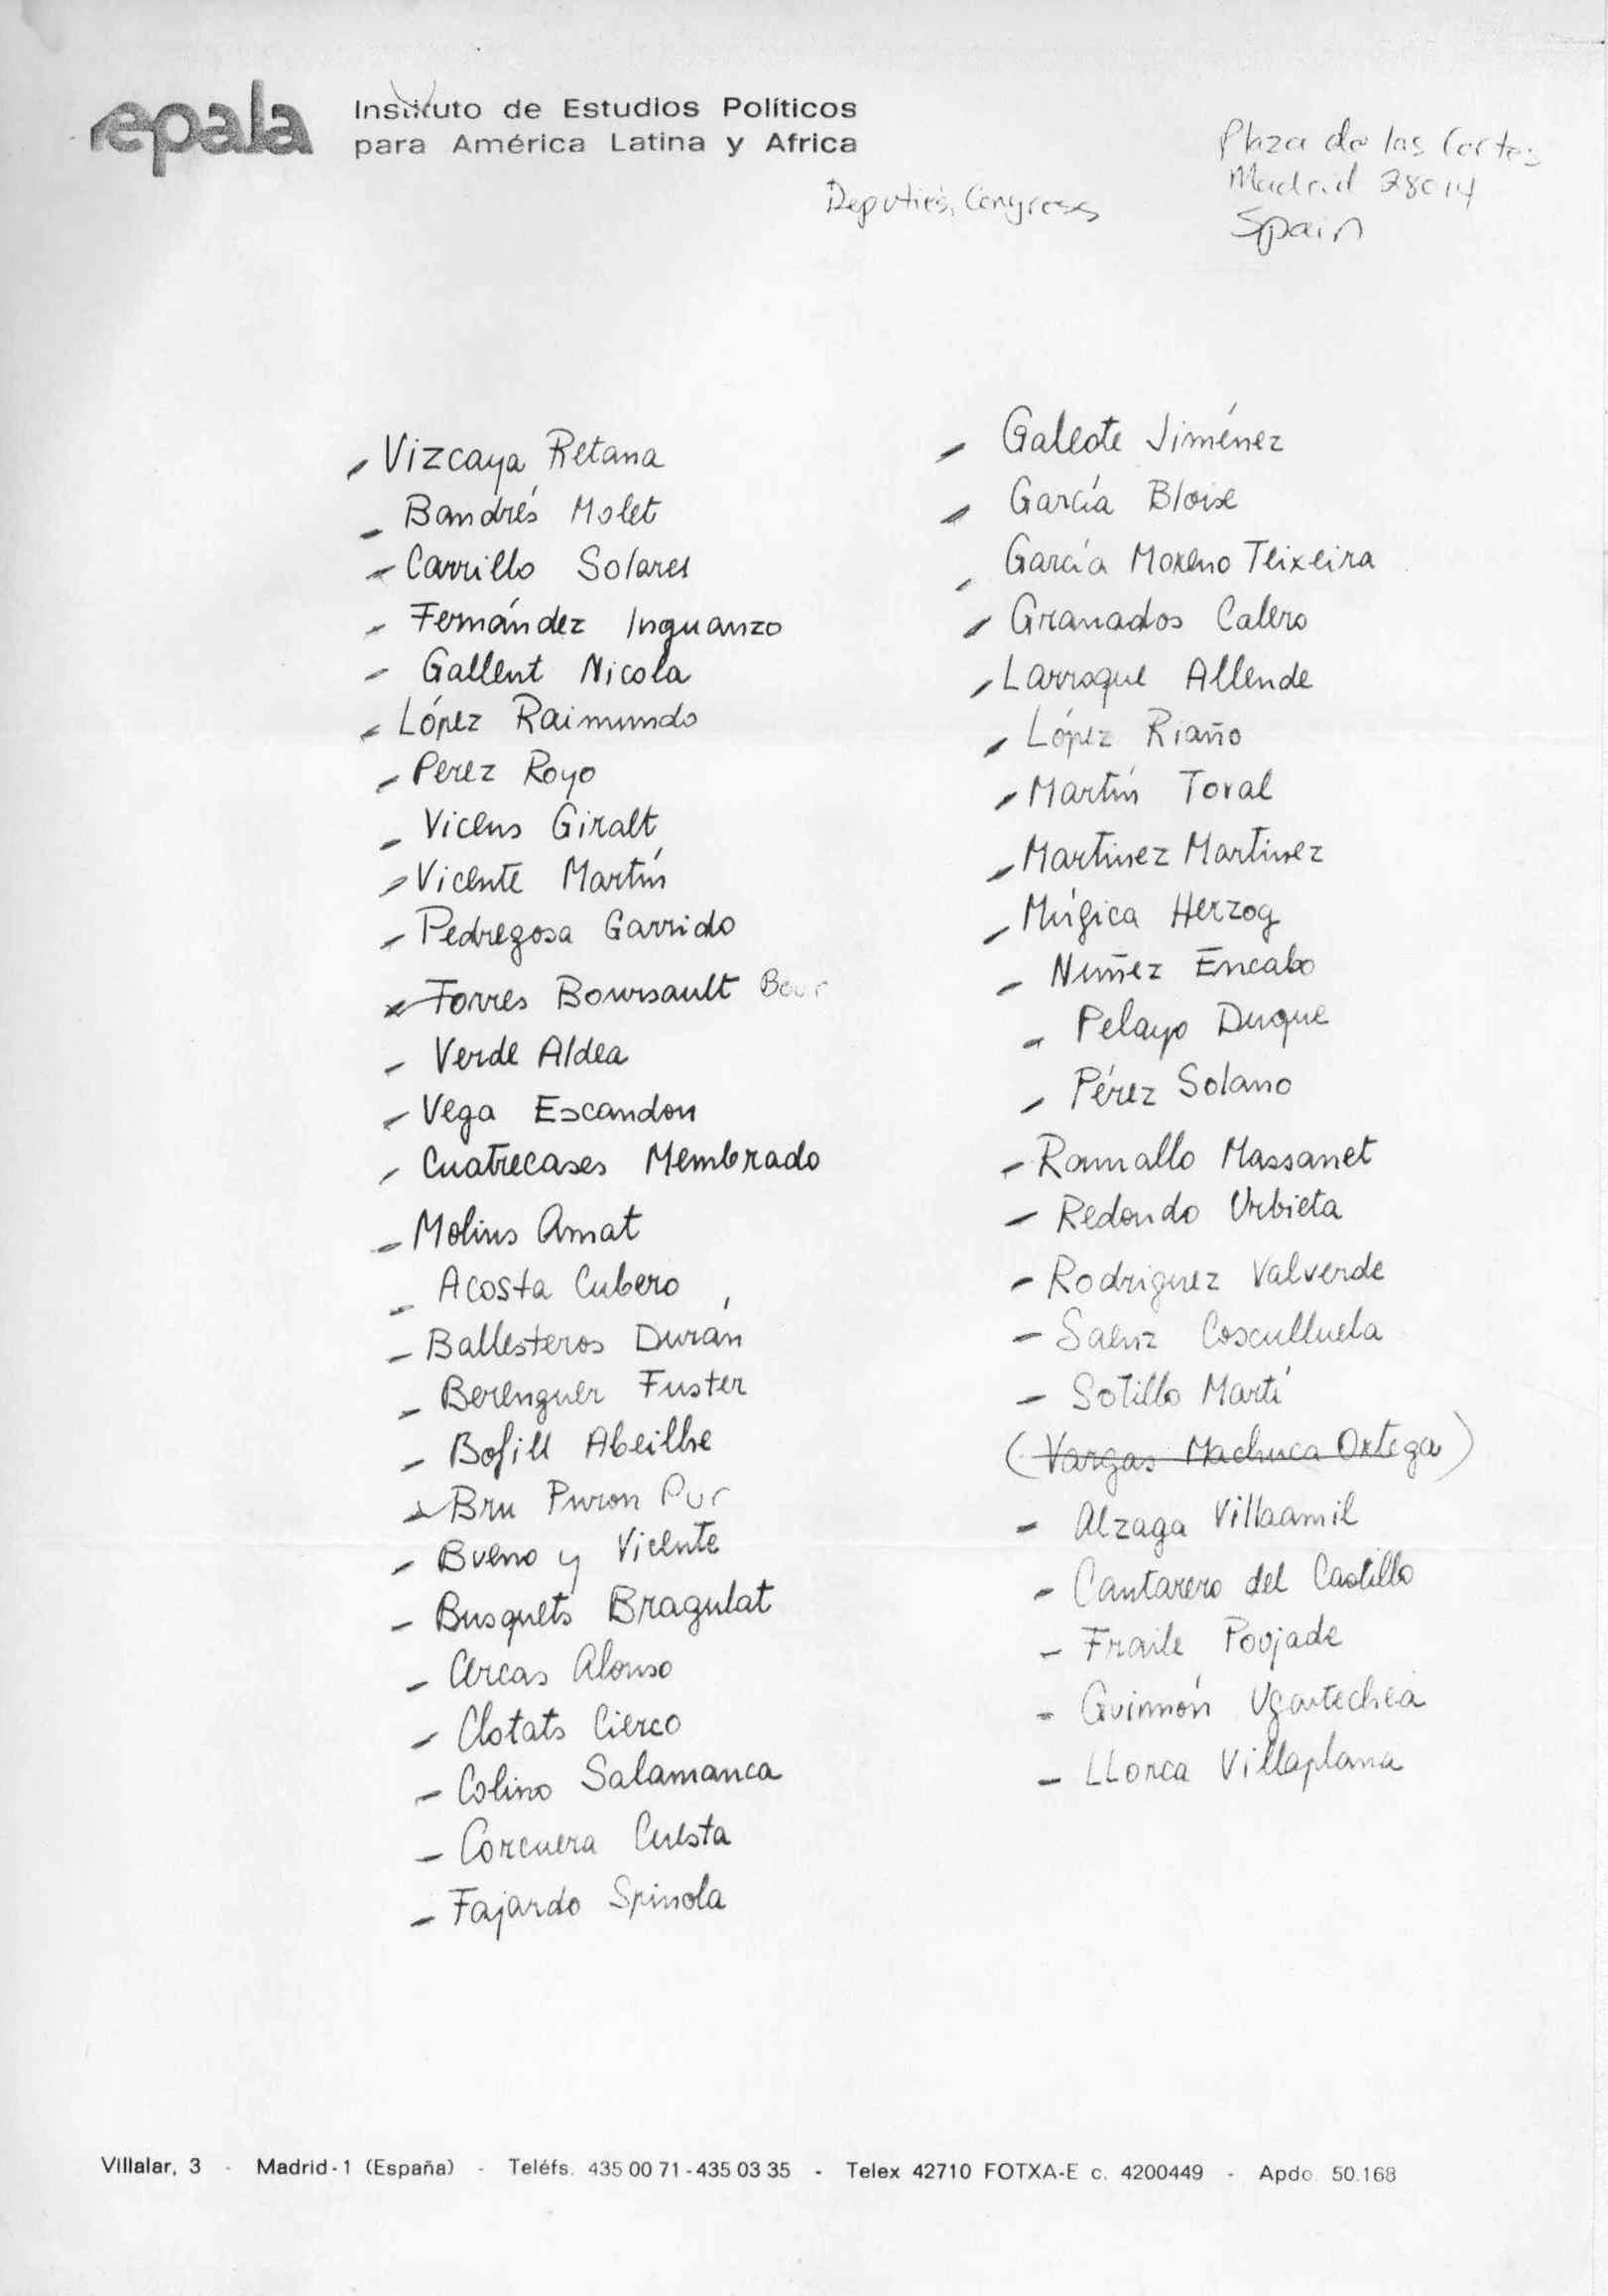 iepala
Instituto de Estudios Políticos
para América Latina y Africa
Plaza de las Cortes
Madrid 28014
Spain
Deputies, Congress
- Vizcaya Retana
- Bandrés Molet
- Carrillo Solares
- Fernández Inguanzo
- Gallent Nicola
- López Raimundo
- Perez Royo
- Vicens Giralt
- Vicente Martín
- Pedregosa Garrido
- Torres Boursault Bour
- Verde Aldea
- Vega Escandon
- Cuatrecases Membrado
- Molins Amat
- Acosta Cubero
- Ballesteros Durán
- Berenguer Fuster
- Bofill Abeilhe
- Bru Puron Pur
- Bueno y Vicente
- Busquets Bragulat
- Cercas Alonso
- Clotats Cierco
- Colino Salamanca
- Corcuera Cuesta
- Fajardo Spinola
- Galeote Jiménez
- García Bloise
- García Moreno Teixeira
- Granados Calero
- Larroque Allende
- López Riaño
- Martín Toval
- Martinez Martinez
- Múgica Herzog
- Nuñez Encabo
- Pelayo Duque
- Pérez Solano
- Ramallo Massanet
- Redondo Urbieta
- Rodriguez Valverde
- Saenz Cosculluela
- Sotillo Martí
(Vargas Machuca Ortega)
- Alzaga Villaamil
- Cantarero del Castillo
- Fraile Poujade
- Guimón Ugartechea
- LLorca Villaplana
Villalar, 3 - Madrid-1 (España) - Teléfs. 435 00 71 - 435 03 35 - Telex 42710 FOTXA-E c. 4200449 - Apdo. 50.168